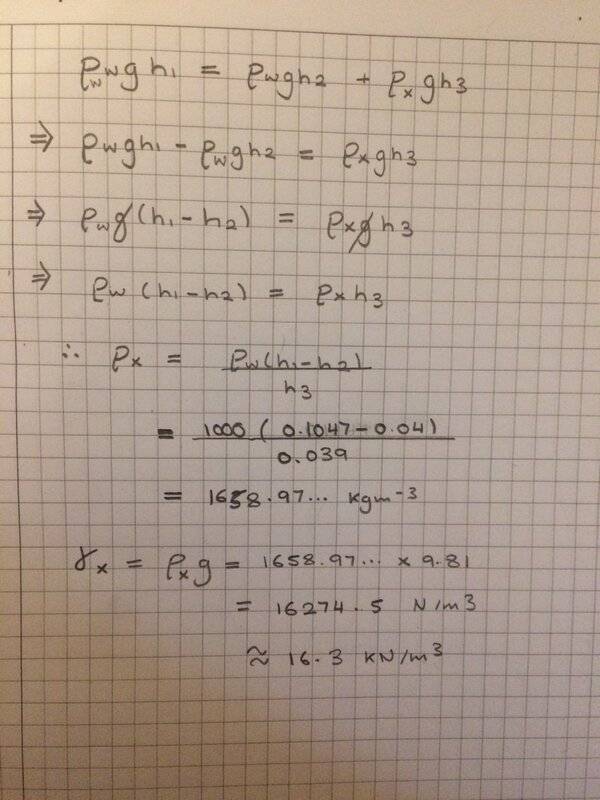 ρwgh1 = ρwgh2 + ρxgh3
⇒ ρwgh1 - ρwgh2 = ρxgh3
⇒ ρwg(h1-h2) = ρxgh3
⇒ ρw(h1-h2) = ρxh3
∴ ρx = ρw(h1-h2)
h3
= 1000 (0.1047-0.04)
0.039
= 1658.97... kgm-3
γx = ρxg = 1658.97... x 9.81
= 16274.5 N/m3
≈ 16.3 kN/m3